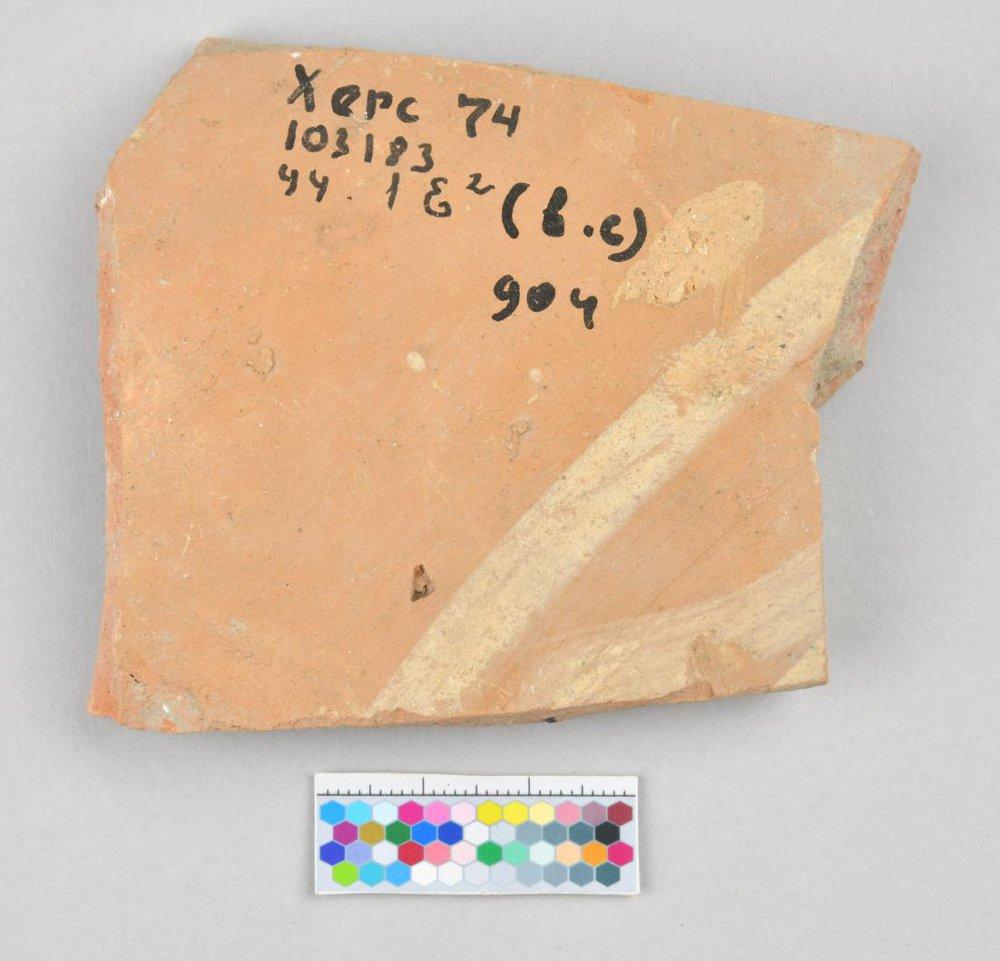 Херс 74
103183
44. 1 Б² (в.с)
904